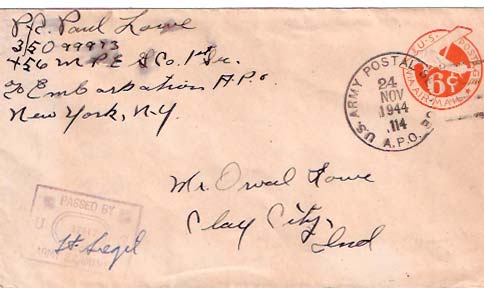 Pfc. Paul Lowe
35099973
456 M.P.E.G Co. 1st
℅ Embarkation A.P.O.
New York, N.Y.
U.S. POSTAGE
6¢
VIA AIR MAIL
U.S. ARMY POSTAL
24
NOV
1944
114
A.P.O.
Mr. Orval Lowe
Clay City,
Ind
PASSED BY
U
ARMY
Lt Segel